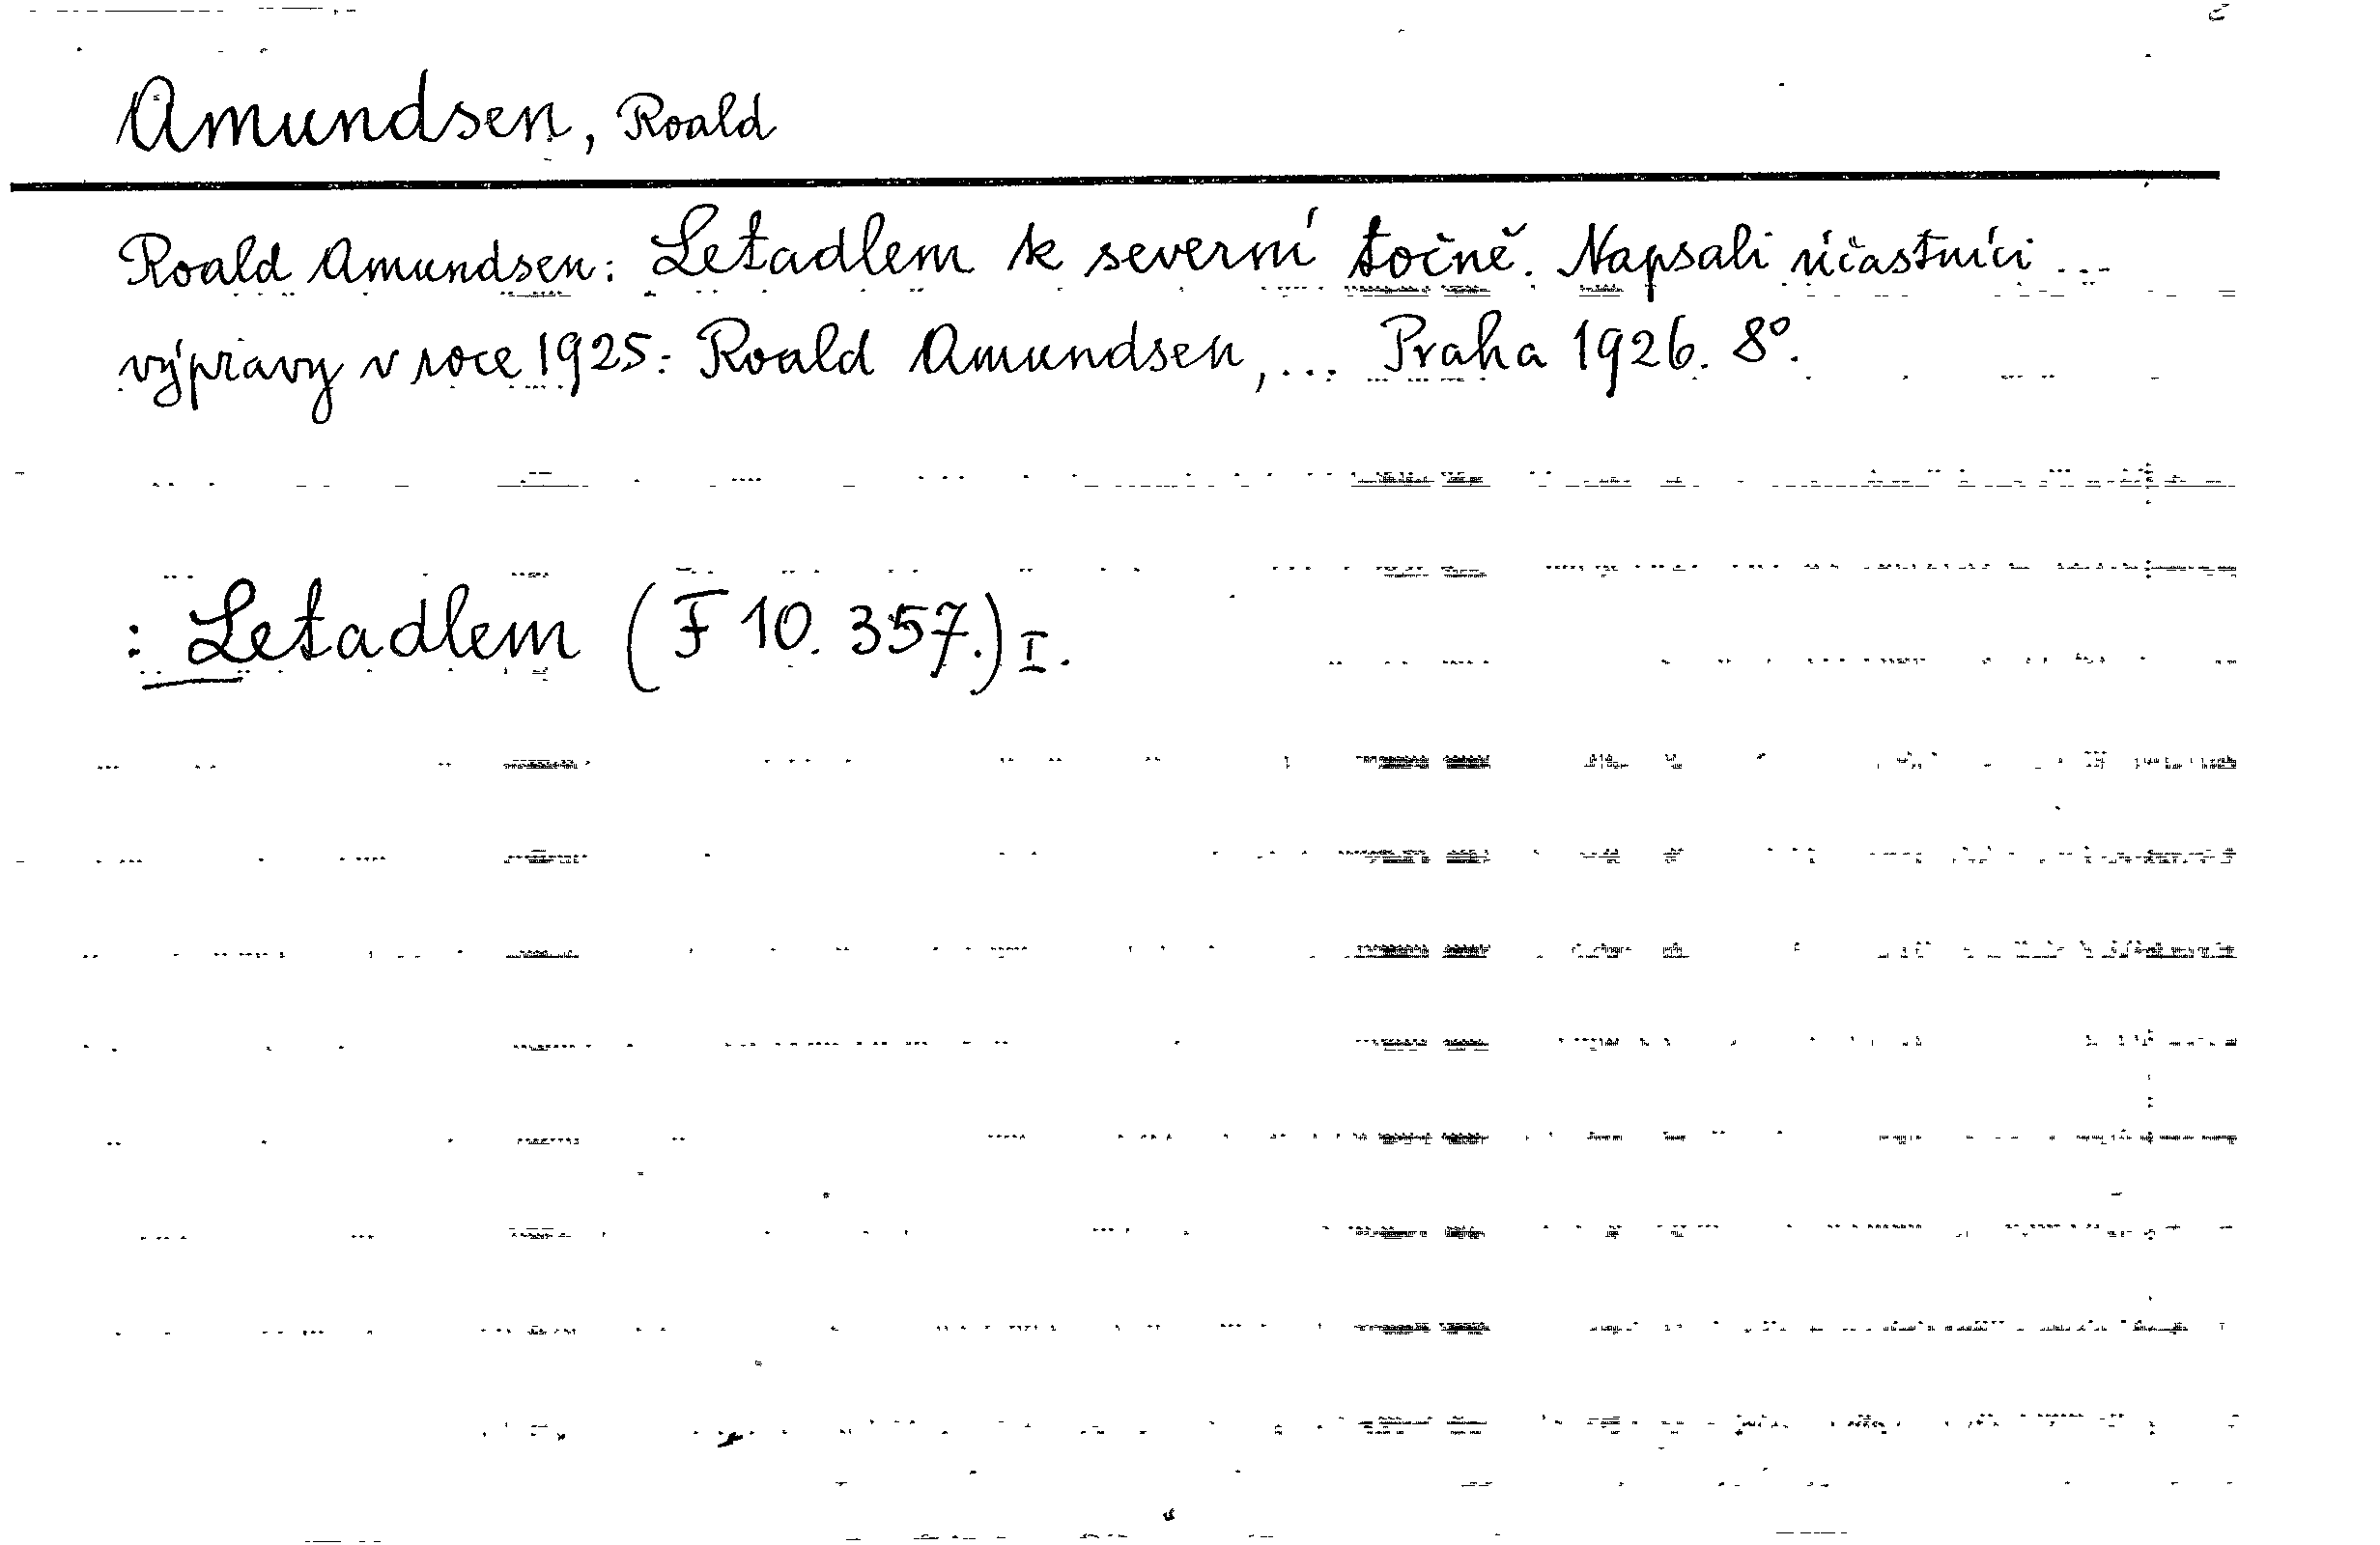 Amundsen, Roald
Roald Amundsen: Letadlem k severní točně. Napsali účastníci ...
výpravy v roce 1925: Roald Amundsen,... Praha 1926. 8°.
: Letadlem (F 10. 357.) I.